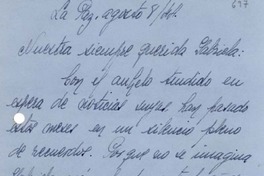 647
La Paz. agosto 8/46.
Nuestra siempre querida Gabriela:
Con el anhelo tendido en
espera de noticias suyas, han pasado
estos meses en un silencio pleno
de recuerdos. Porque no se imagina